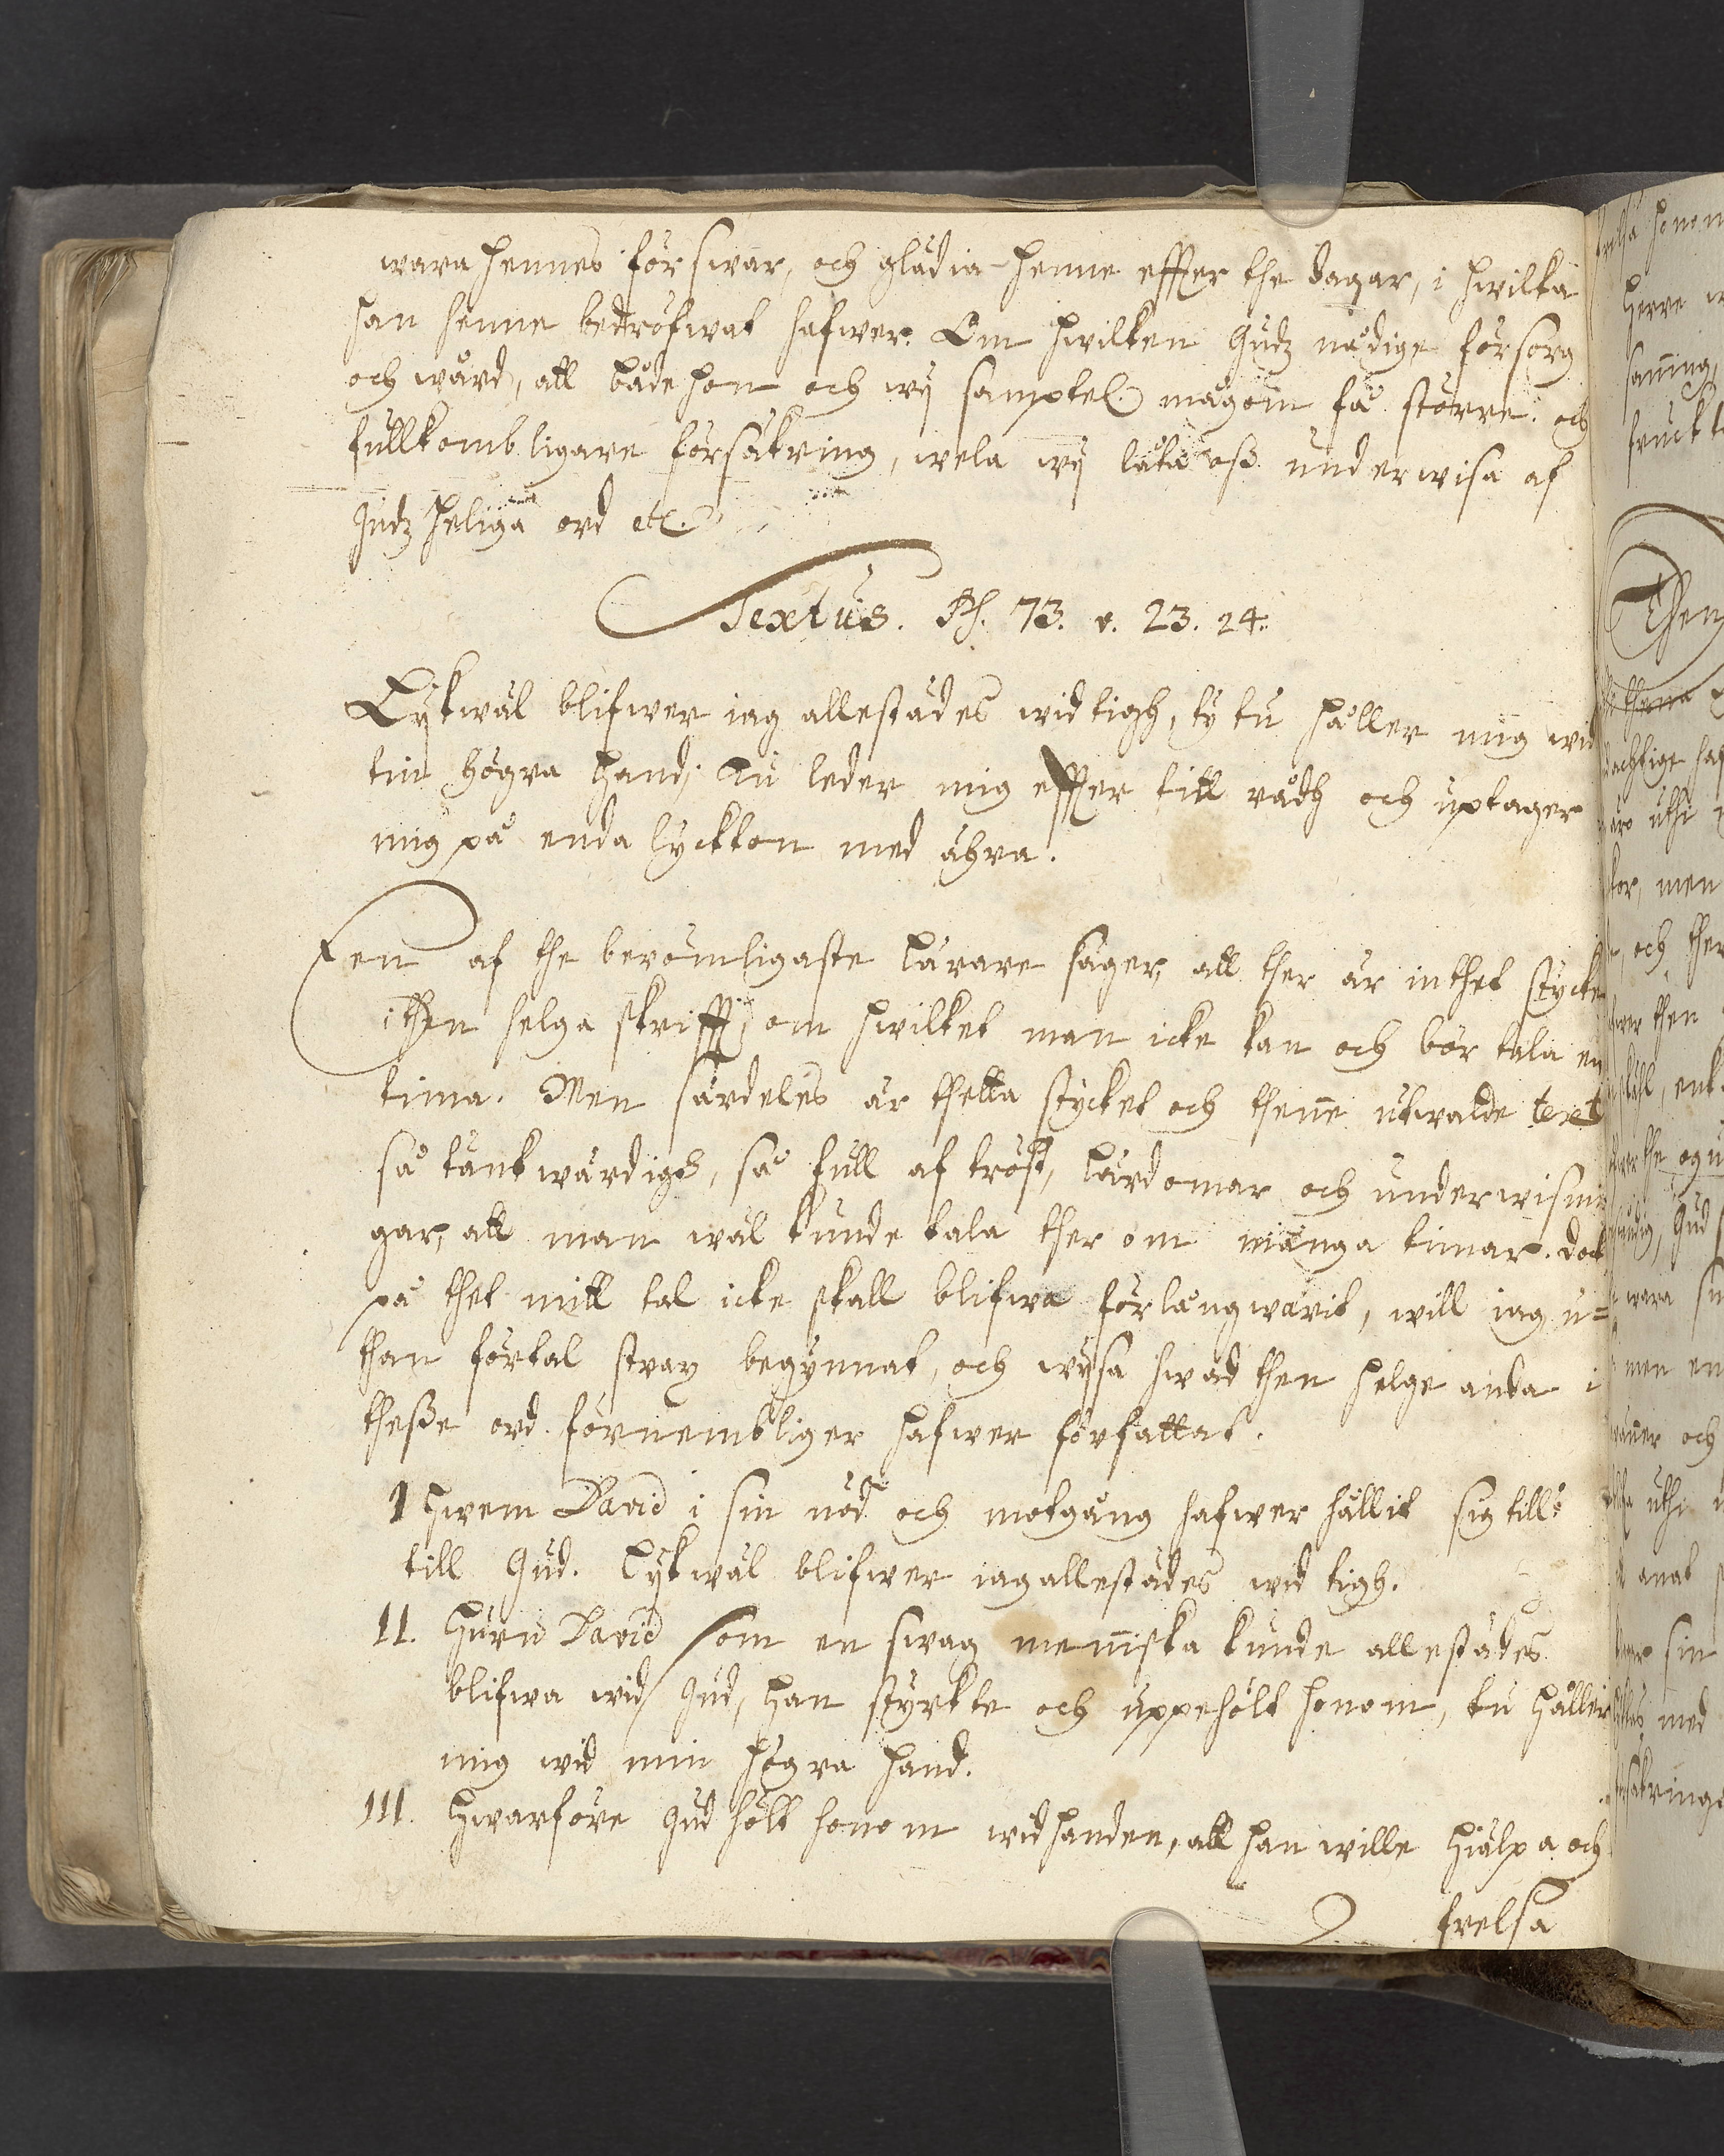 wara hennes förswar, och glädia henne effter the dagar, i hwilka
han henne bedröfwat hafwer. Om hwilken Gudz nådige försorg
och wård, att både hon och wij samptel. mågom få större och
fullkombligare försäkring, wela wij låta oß underwisa af
Gudz heliga ord etc.
Textus. Ps. 73. v. 23. 24.
Lijkwäl blifwer iag allestädes wid tigh, ty tu håller mig wid
tin högra hand; Tu leder mig effter titt rådh och uptager
mig på enda lyckton med ähra.
Een af the berömligaste Lärare säger, att ther är inthet stycke
i then helga skrifft, om hwilket man icke kan och bör tala en
tima. Men särdeles är thetta stycket och thenne utwalde text
så tänkwärdigh, så full af tröst, Lärdomar och underwisnin
gar, att man wäl kunde tala ther om många timar. doch
på thet mitt tal icke skall blifwa förlångwarit, will iag u=
than förtal strax begynnat, och wijsa hwad then helge anda i
theße ord förnembliger hafwer författat.
I Hwem David i sin nöd och motgång hafwer hållit sig till:
till Gud. Lijkwäl blifwer iag allestädes wid tigh.
II. Huru David som en swag menniska kunde allestädes
blifwa wid Gud, han styrkte och uppehölt honom, tu håller
mig wid min högra hand.
III. Hwarföre Gud hölt honom wid handen, att han wille hielpa och
frelsa